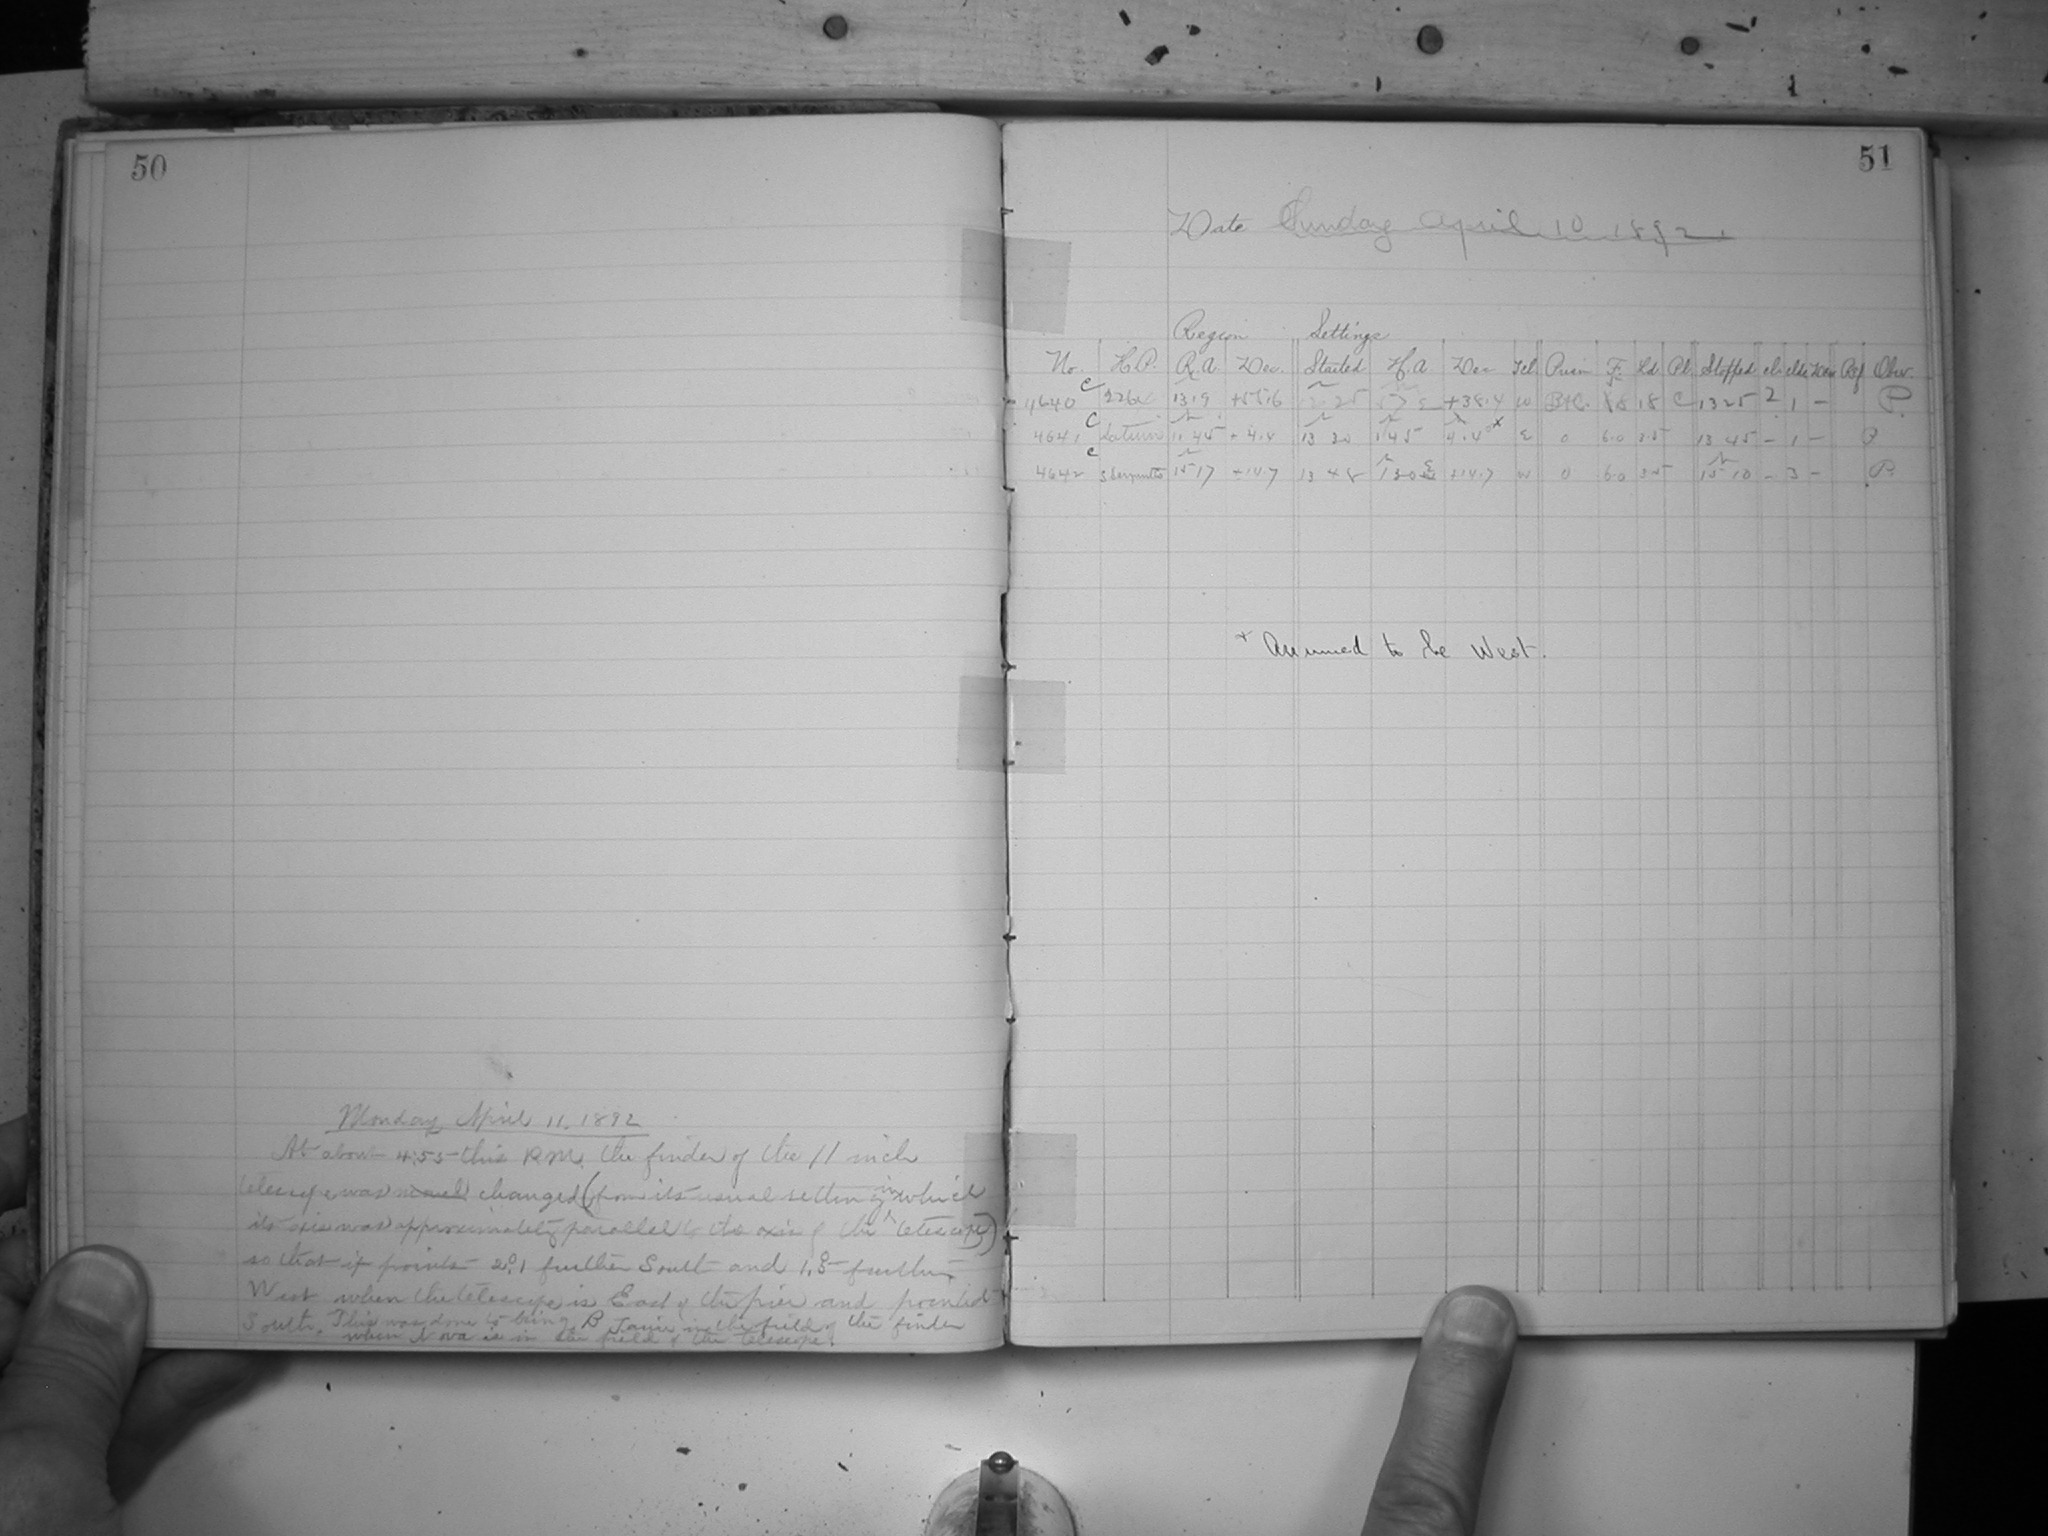 50
Monday, April 11, 1892
At about 4.55 this P.M. the finder of the 11 inch
telescope was moved changed (from its usual setting in which
its axis was approximately parallel to the axis of the telescope)
so that it points 2°.1 further South and 1.8 further
West when the telescope is East of the pier and pointed
South. This was done to bring β Tauri in the field of the finder
when Nova is in the field of the telescope.
51
Date Sunday April 10 1892.
Region Settings
No. H.P. R.A. Dec. Started H.A. Dec Tel Prism F. Ld. Pl. Stopped Obsr.
4640 C 13 19 +55.6 25 +38.4 W 18 C 13 25 2 1 - P.
4641 C Saturn 11 45 + 4.4 13 30 1 45 4.4 x E 0 6.0 3.5 13 45 - 1 - P
4642 C 15 17 +14.7 13 48 1 30 E +14.7 W 0 6.0 3.5 15 10 - 3 - P.
x Assumed to be West.